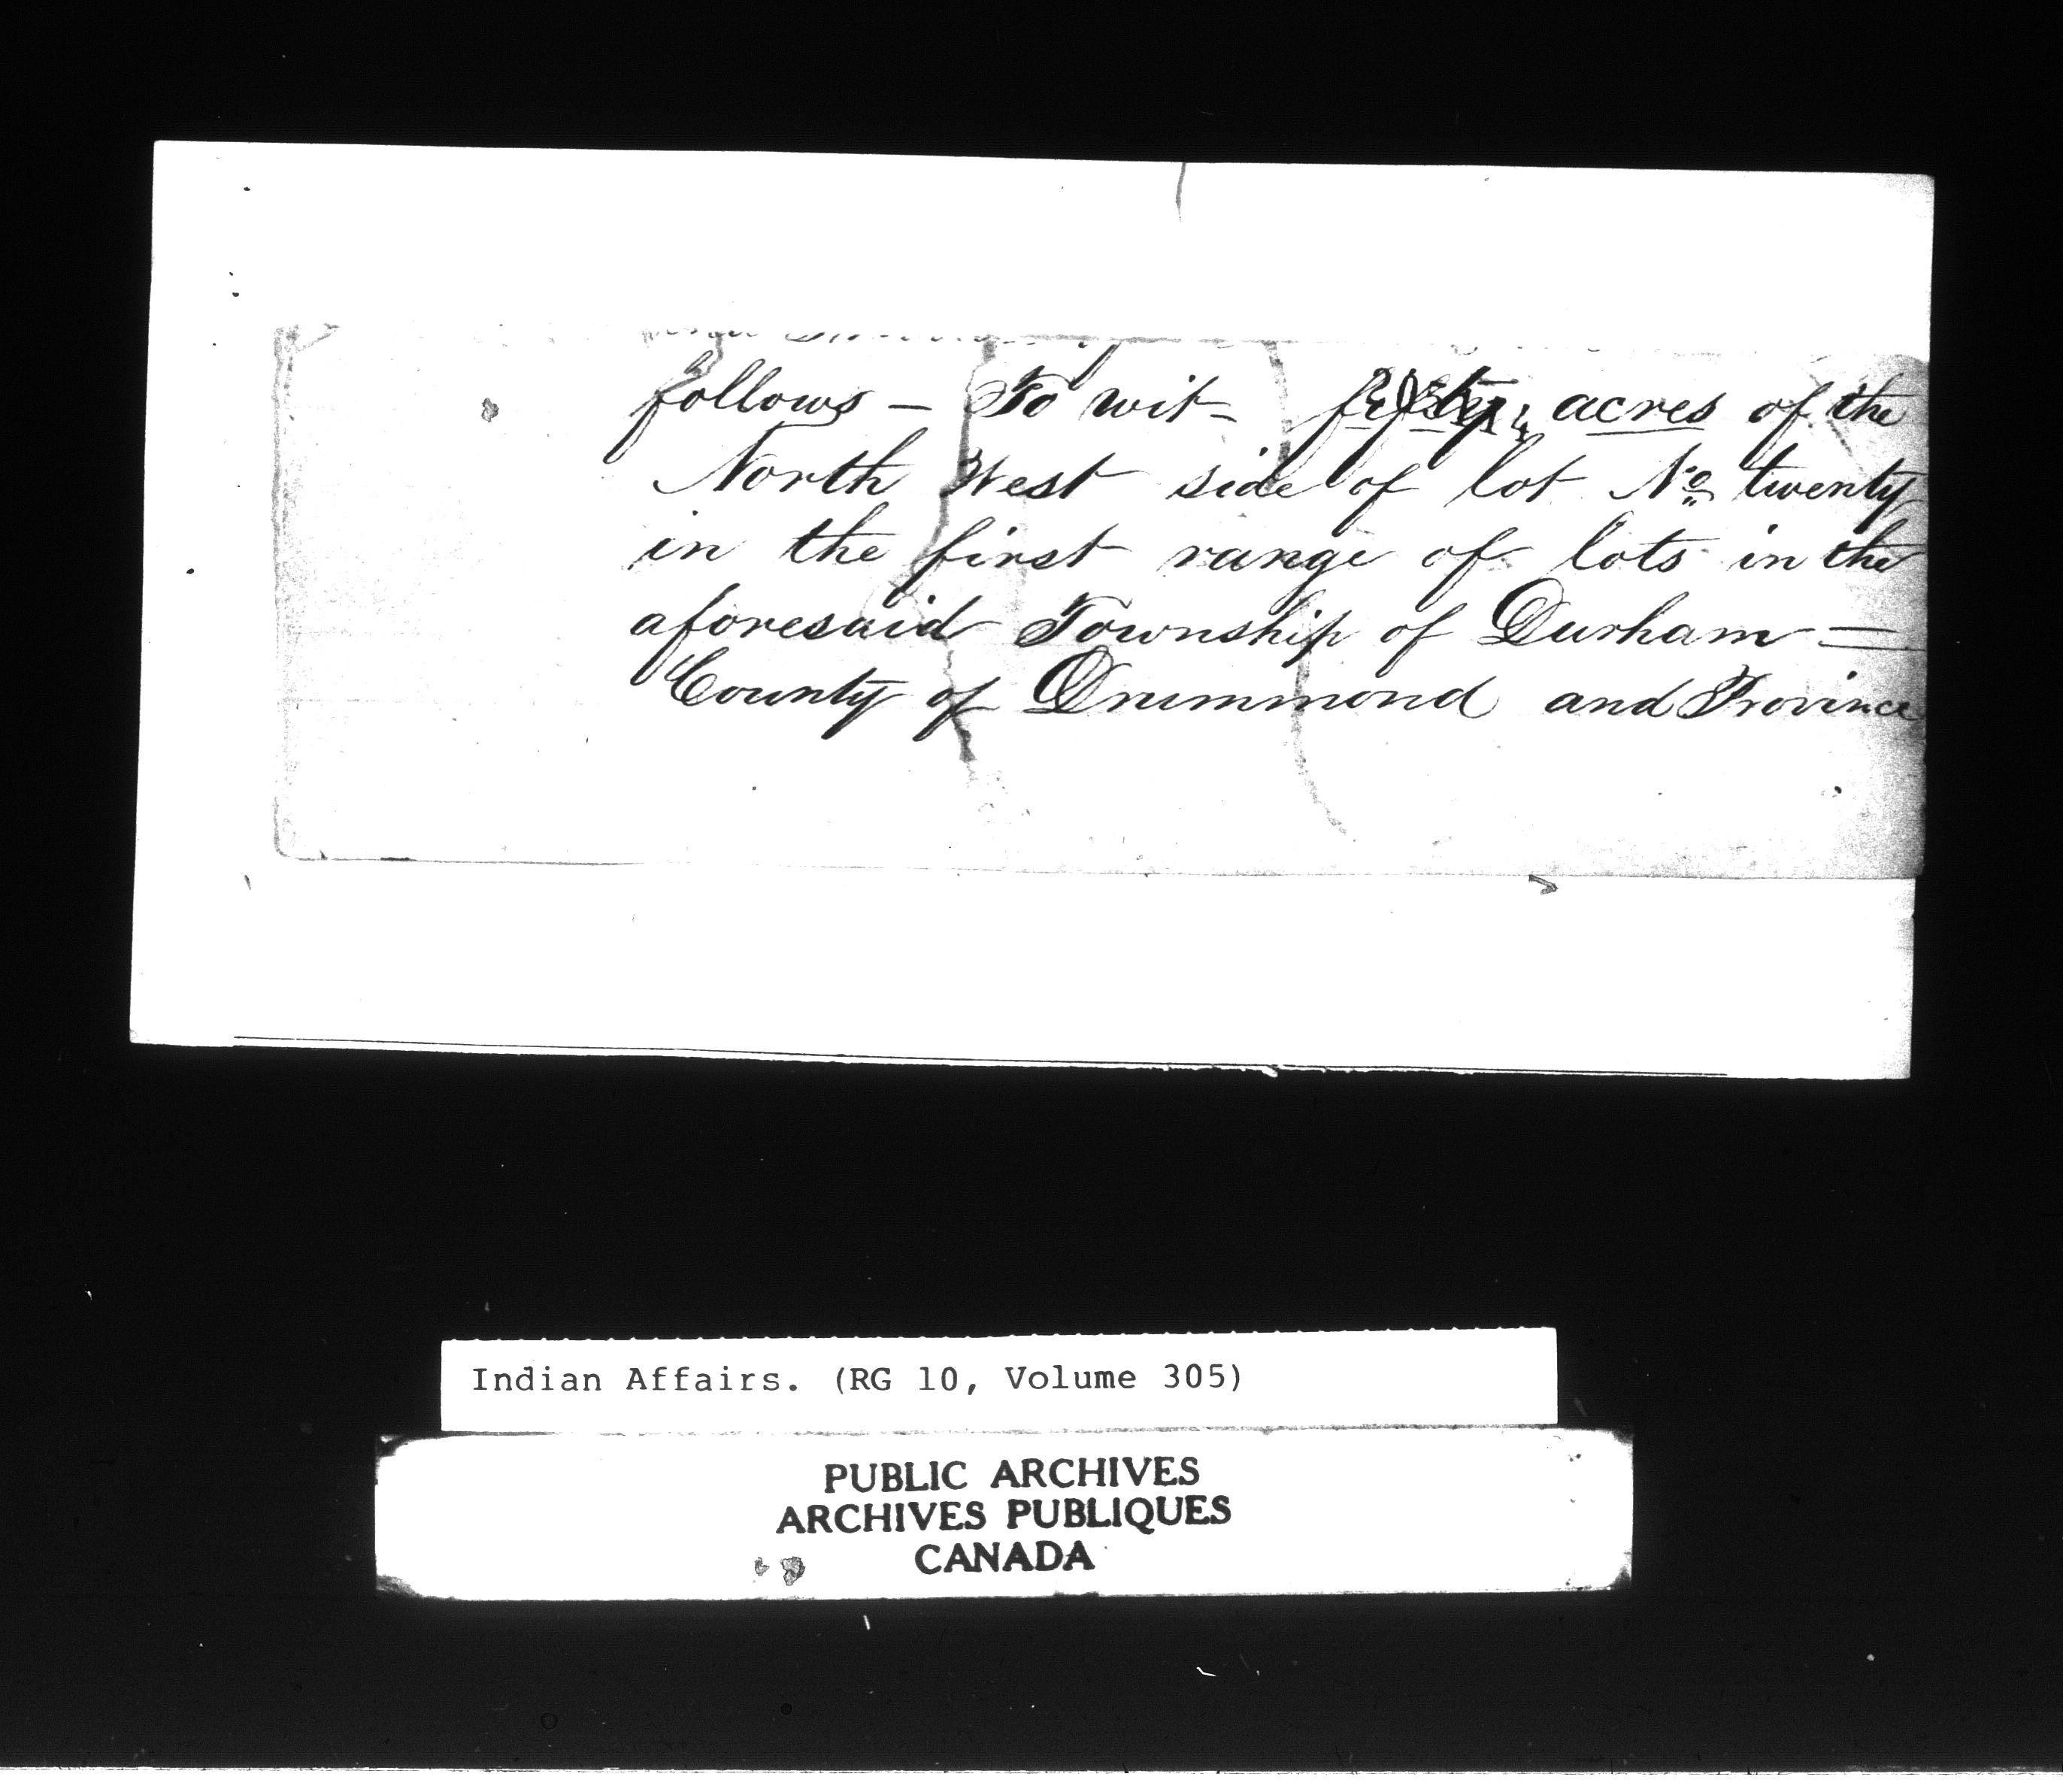 follows — To wit — fifty acres of the
North West side of lot No twenty
in the first range of lots in the
aforesaid Township of Durham =
County of Drummond and Province
Indian Affairs. (RG 10, Volume 305)
PUBLIC ARCHIVES
ARCHIVES PUBLIQUES
CANADA